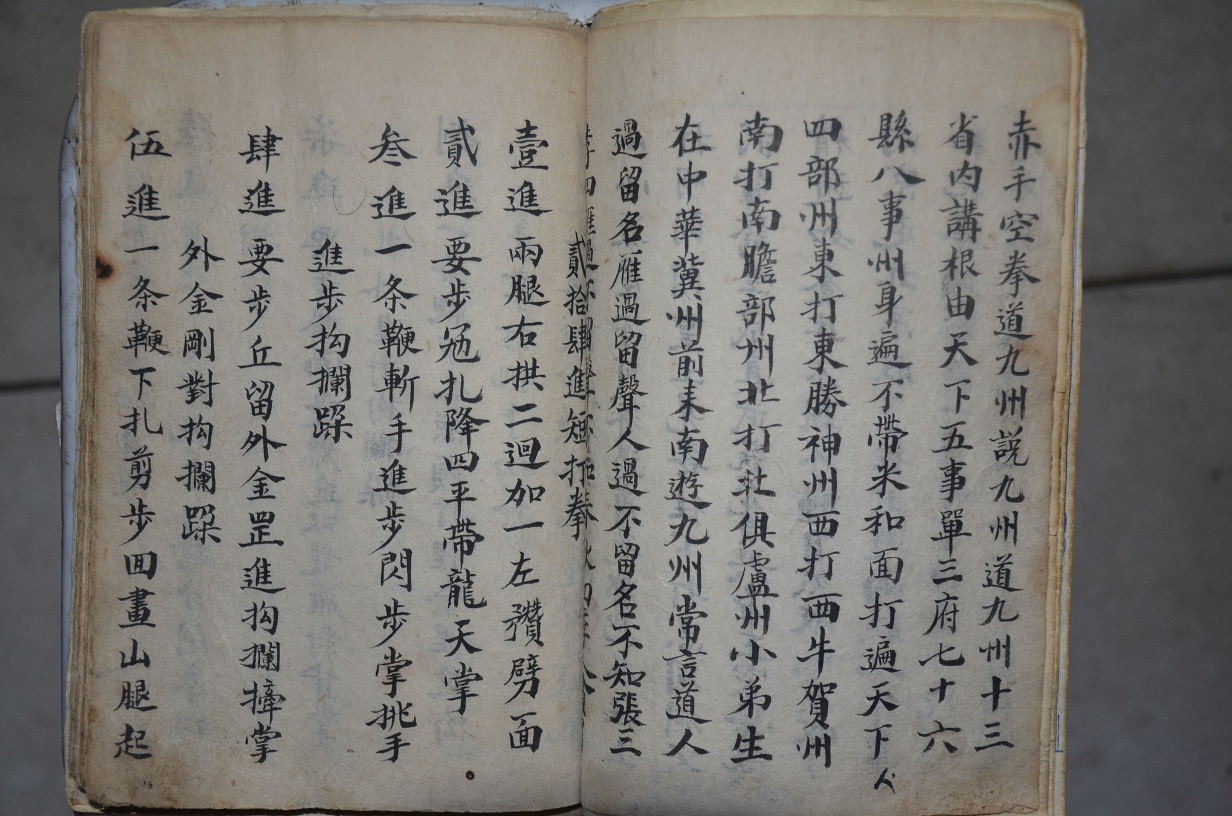 赤手空拳道九州説九州道九州十三
省内講根由天下五事單三府七十六
縣八事州身遍不帶米和面打遍天下
四部州東打東勝神州西打西牛賀州
南打南贍部州北打北俱盧州小弟生
在中華冀州前来南遊九州常言道人
過留名雁過留聲人過不留名不知張三
貳拾肆進短打拳
壹進兩腿右拱二迴加一左攢劈面
貳進要步冠扎降四平帶龍天掌
叁進一条鞭斬手進步閃步掌挑手
進步抅攔跺
肆進要步丘留外金罡進抅攔掌
外金剛對抅攔跺
伍進一条鞭下扎剪步回畫山腿起